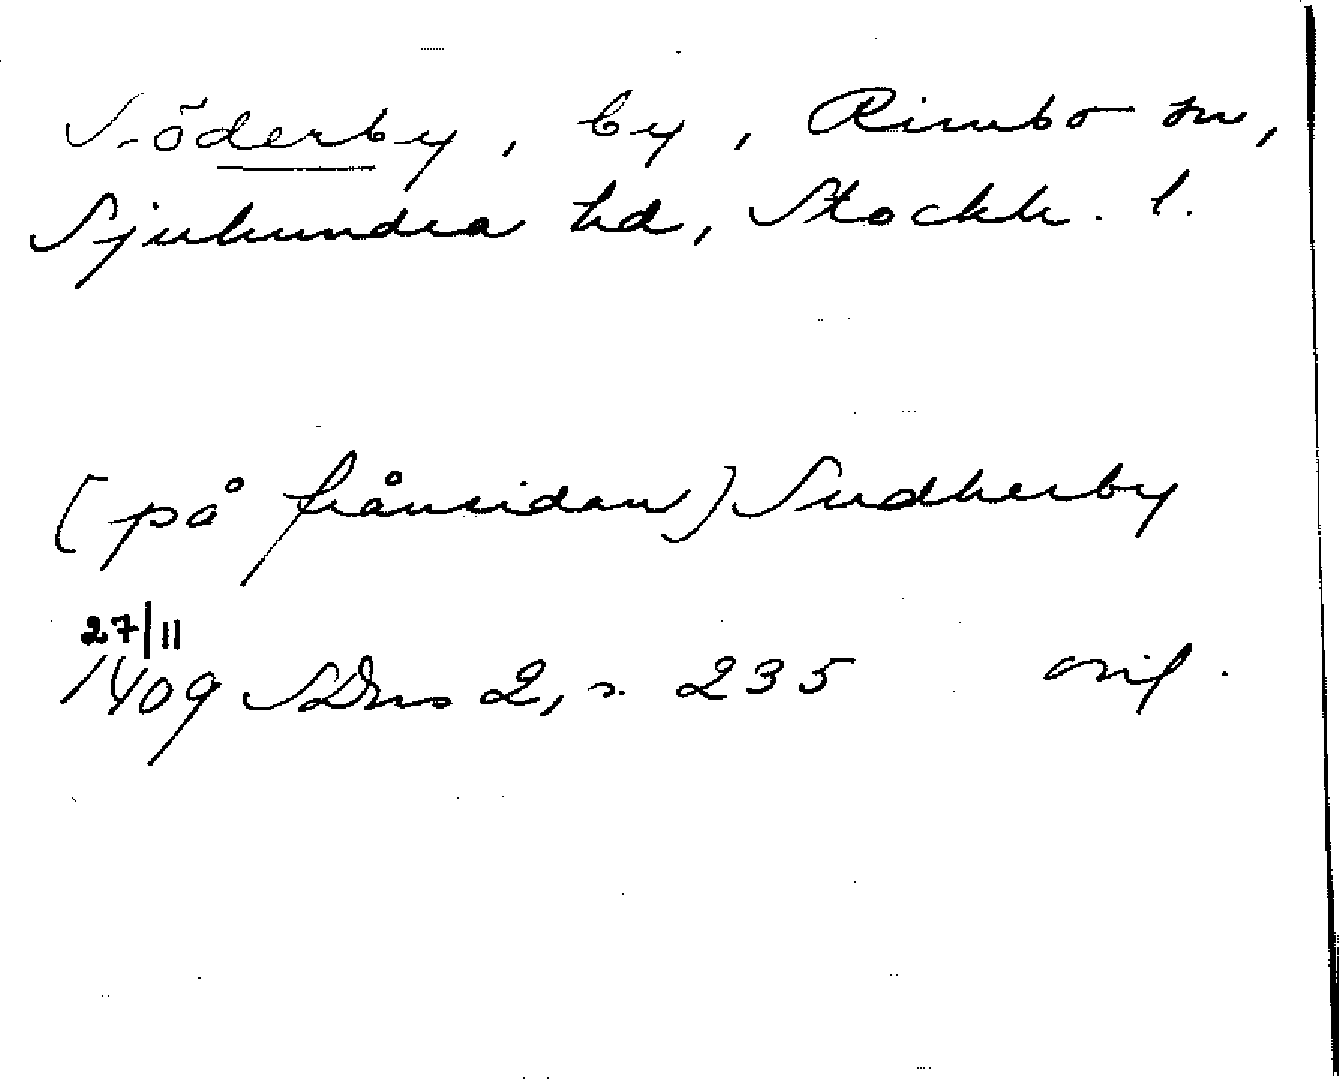 Söderby, by, Rimbo sn,
Sjuhundra hd, Stockh. l.
(på frånsidan) Sudherby
27/11
1409 SDns 2, s. 235 orig.